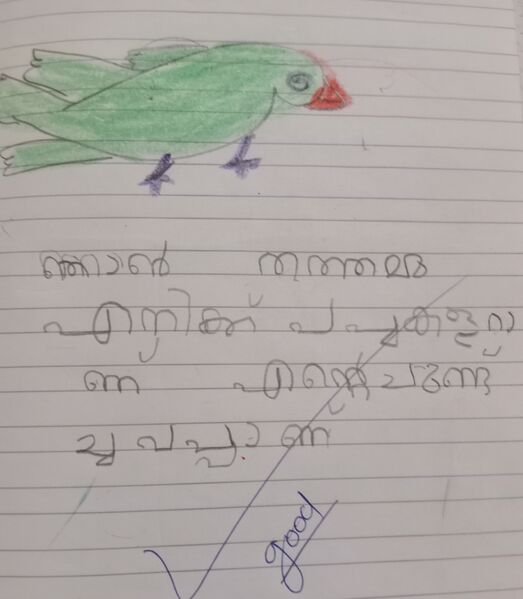 ഞാൻ തത്തമ്മ
എനിക്ക് പച്ചകളറാ
ണ് എന്റെ ചുണ്ട്
ചുവപ്പാണ്
good